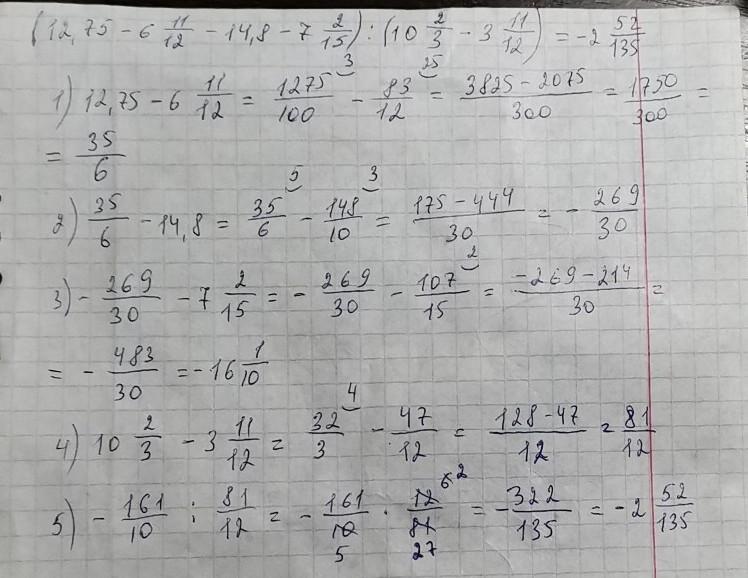 (12,75 - 6 11/12 - 14,8 - 7 2/15) : (10 2/3 - 3 11/12) = -2 52/135
1) 12,75 - 6 11/12 = 1275/100 ³ - 83/12 ²⁵ = (3825 - 2075)/300 = 1750/300 =
= 35/6
2) 35/6 - 14,8 = 35/6 ⁵ - 148/10 ³ = (175 - 444)/30 = - 269/30
3) - 269/30 - 7 2/15 = - 269/30 - 107/15 ² = (-269 - 214)/30 =
= - 483/30 = -16 1/10
4) 10 2/3 - 3 11/12 = 32/3 ⁴ - 47/12 = (128 - 47)/12 = 81/12
5) - 161/10 : 81/12 = - 161/10 · 12/81 6 2 = - 322/135 = -2 52/135
5 27